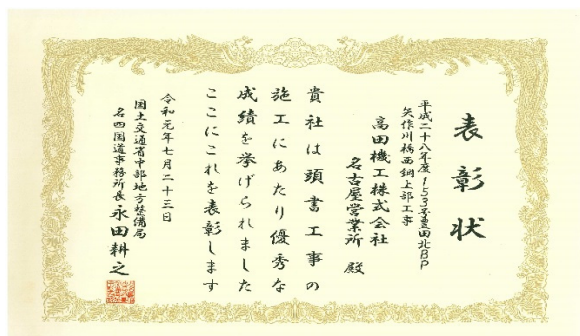 表彰状
平成二十八年度153号豊田北BP
矢作川橋西鋼上部工事
高田機工株式会社
名古屋営業所 殿
貴社は頭書工事の
施工にあたり優秀な
成績を挙げられました
ここにこれを表彰します
令和元年七月二十三日
国土交通省中部地方整備局
名四国道事務所長 永田耕之